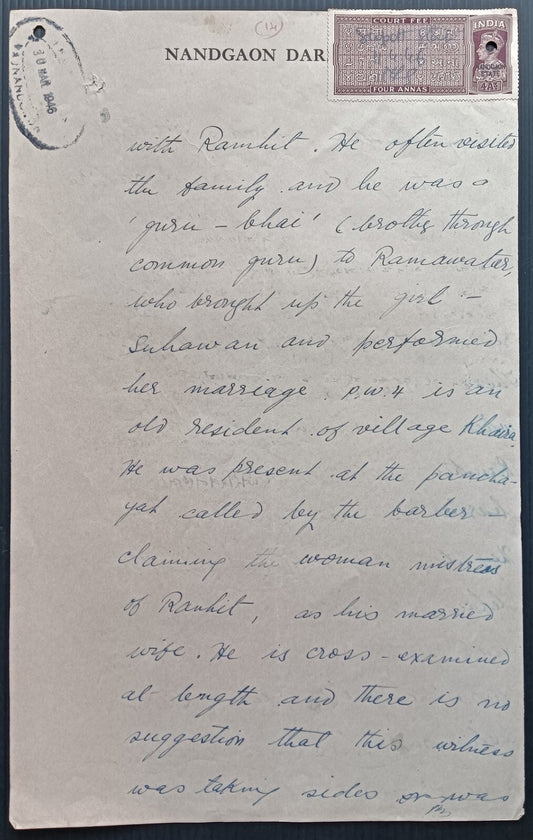 (14)
NANDGAON DAR
COURT FEE
FOUR ANNAS
INDIA
STATE
30 MAR 1946
with Ramhit. He often visited
the family and he was a
'guru - bhai' (brother through
common guru) to Ramawatar,
who brought up the girl -
Suhawan and performed
her marriage. P.W.4 is an
old resident of village Khaira.
He was present at the pancha-
yat called by the barber -
claiming the woman mistress
of Ramhit, as his married
wife. He is cross-examined
at length and there is no
suggestion that this witness
was taking sides or was